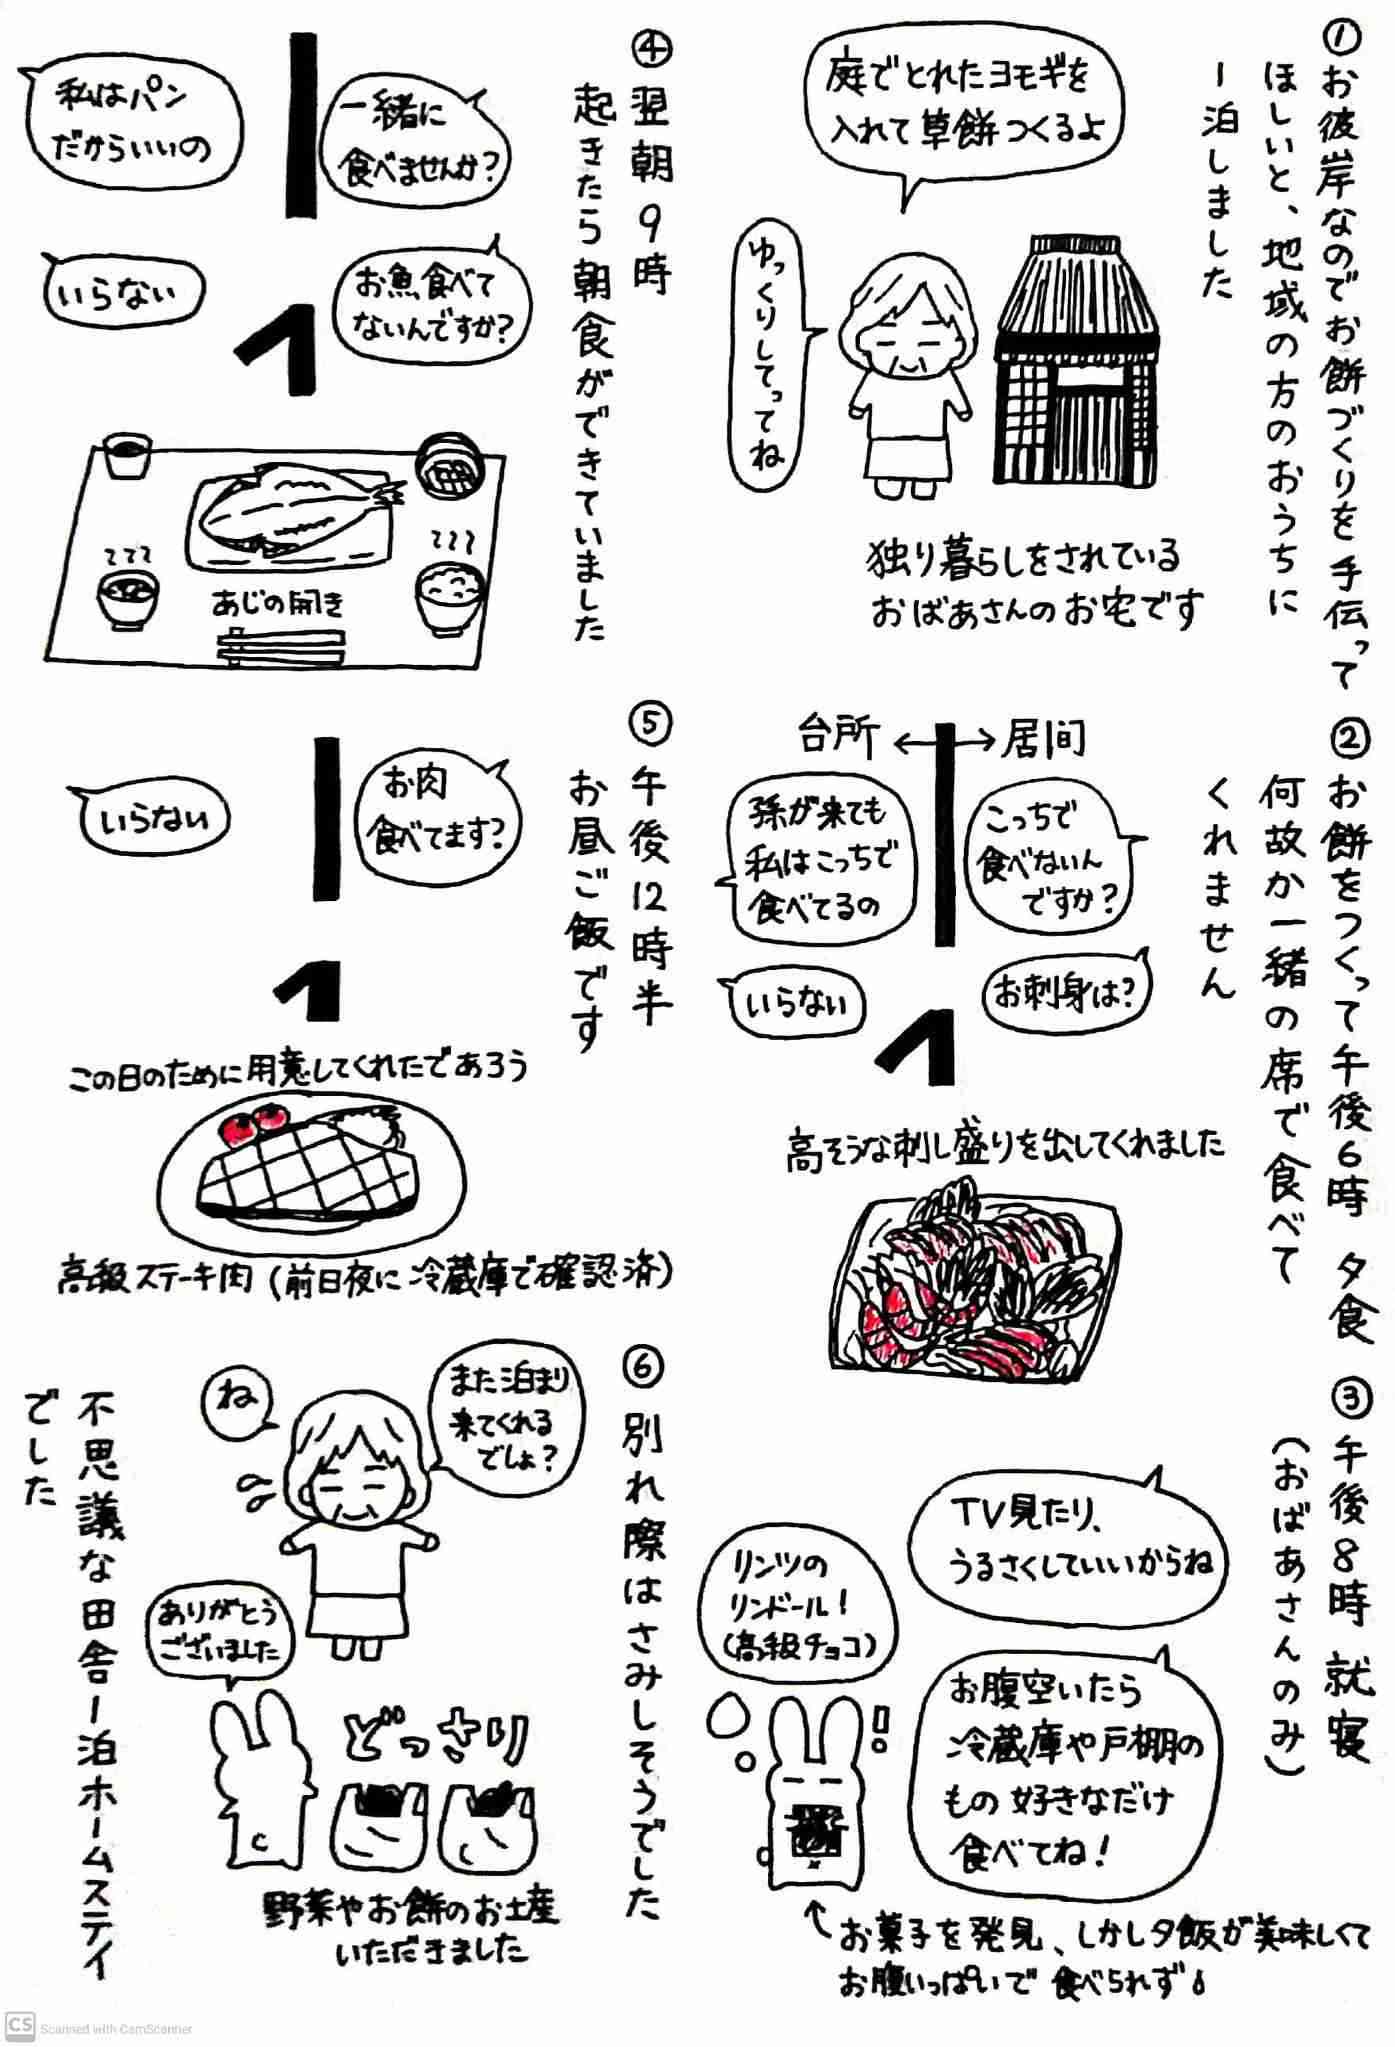 ①お彼岸なのでお餅づくりを手伝って
ほしいと、地域の方のおうちに
一泊しました
庭でとれたヨモギを
入れて草餅つくるよ
ゆっくりしてってね
独り暮らしをされている
おばあさんのお宅です
②お餅をつくって午後6時 夕食
何故か一緒の席で食べて
くれません
台所 ←→ 居間
こっちで
食べないん
ですか?
孫が来ても
私はこっちで
食べてるの
お刺身は?
いらない
高そうな刺し盛りを出してくれました
③午後8時 就寝
(おばあさんのみ)
TV見たり、
うるさくしていいからね
お腹空いたら
冷蔵庫や戸棚の
もの好きなだけ
食べてね!
リンツの
リンドール!
(高級チョコ)
お菓子を発見、しかし夕飯が美味しくて
お腹いっぱいで食べられず
④翌朝9時
起きたら朝食ができていました
一緒に
食べませんか?
私はパン
だからいいの
お魚食べて
ないんですか?
いらない
あじの開き
⑤午後12時半
お昼ご飯です
お肉
食べてます?
いらない
この日のために用意してくれたであろう
高級ステーキ肉(前日夜に冷蔵庫で確認済)
⑥別れ際はさみしそうでした
また泊まり
来てくれる
でしょ?
ね
ありがとう
ございました
どっさり
野菜やお餅のお土産
いただきました
不思議な田舎一泊ホームステイ
でした
CS Scanned with CamScanner